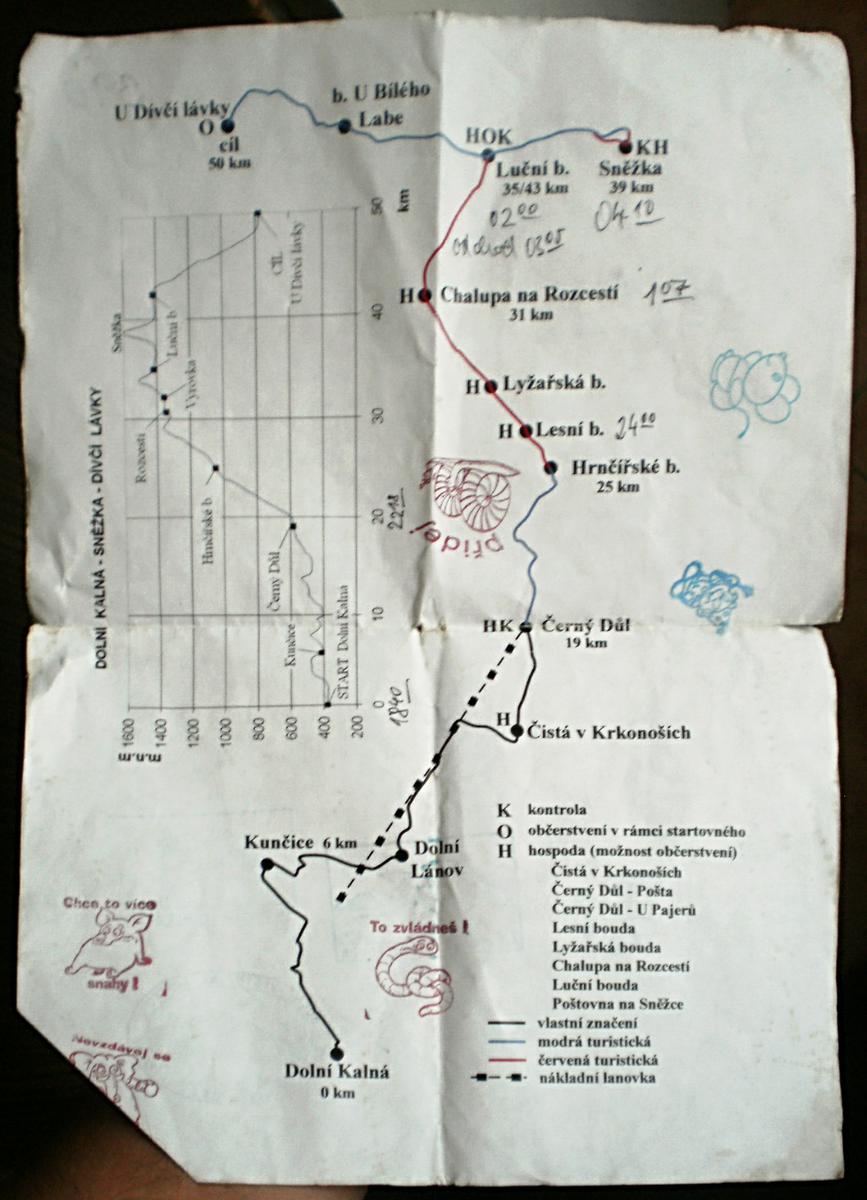 U Dívčí lávky
O
cíl
50 km
b. U Bílého
Labe
HOK
Luční b.
35/43 km
02 00
03 05
KH
Sněžka
39 km
04 10
H Chalupa na Rozcestí 1 07
31 km
H Lyžařská b.
H Lesní b. 24 00
Hrnčířské b.
25 km
přidej
HK Černý Důl
19 km
H
Čistá v Krkonoších
Kunčice 6 km
Dolní
Lánov
Dolní Kalná
0 km
DOLNÍ KALNÁ - SNĚŽKA - DÍVČÍ LÁVKY
m.n.m
1600
1400
1200
1000
800
600
400
200
0
10
20
30
40
50
km
START Dolní Kalná
Kunčice
Černý Důl
Hrnčířské b
Rozcestí
Výrovka
Luční b
Sněžka
CÍL
U Dívčí lávky
18 40
22 18
K kontrola
O občerstvení v rámci startovného
H hospoda (možnost občerstvení)
Čistá v Krkonoších
Černý Důl - Pošta
Černý Důl - U Pajerů
Lesní bouda
Lyžařská bouda
Chalupa na Rozcestí
Luční bouda
Poštovna na Sněžce
vlastní značení
modrá turistická
červená turistická
nákladní lanovka
Chce to více
snahy !
To zvládneš !
Nevzdávej se